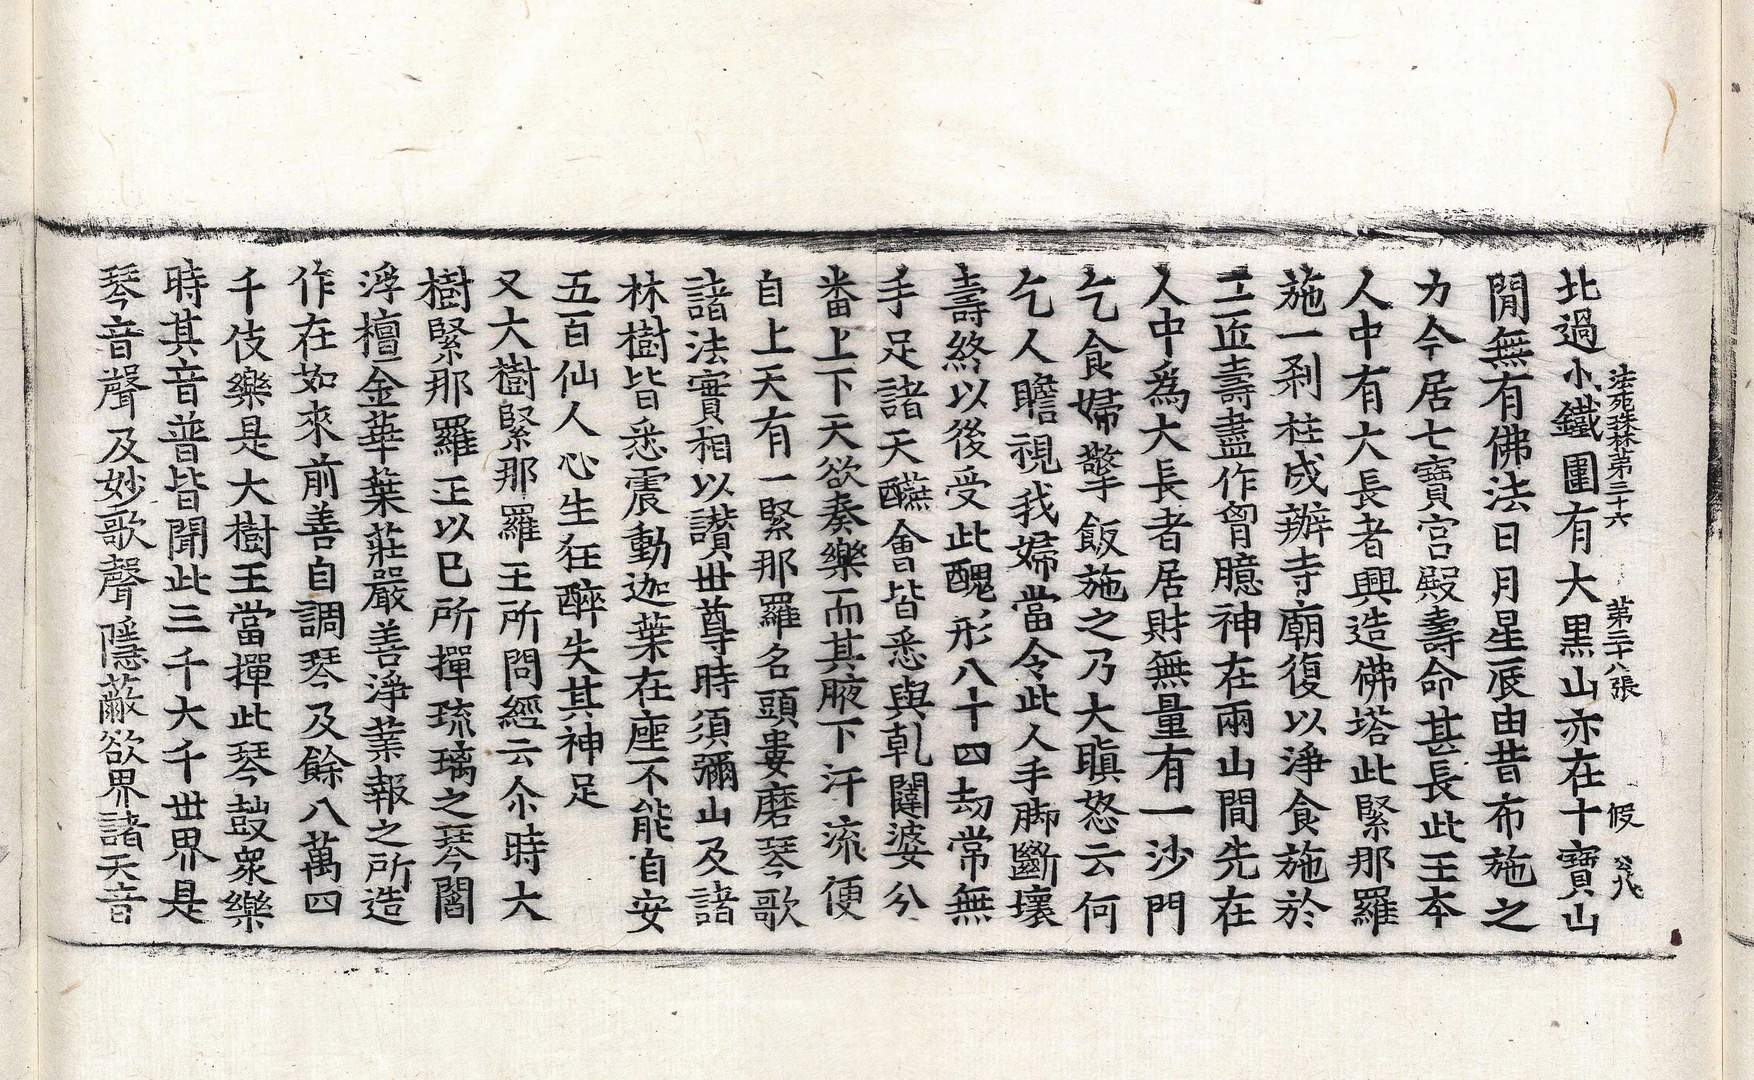 法苑珠林第三十六　第二十八張　假　公八
北過小鐵圍有大黒山亦在十寶山
閒無有佛法日月星辰由昔布施之
力今居七寶宮殿壽命甚長此王本
人中有大長者興造佛塔此緊那羅
施一刹柱成辦寺廟復以淨食施於
工匠壽盡作胷臆神在兩山間先在
人中爲大長者居財無量有一沙門
乞食婦擎飯施之乃大瞋怒云何
乞人瞻視我婦當令此人手脚斷壞
壽終以後受此醜形八十四劫常無
手足諸天讌會皆悉與乹闥婆分
番上下天欲奏樂而其腋下汗流便
自上天有一緊那羅名頭婁磨琴歌
諸法實相以讃世尊時須彌山及諸
林樹皆悉震動迦葉在座不能自安
五百仙人心生狂醉失其神足
又大樹緊那羅王所問經云尒時大
樹緊那羅王以已所揮琉璃之琴閻
浮檀金華葉莊嚴善淨業報之所造
作在如來前善自調琴及餘八萬四
千伎樂是大樹王當揮此琴鼓衆樂
時其音普皆聞此三千大千世界是
琴音聲及妙歌聲隱蔽欲界諸天音